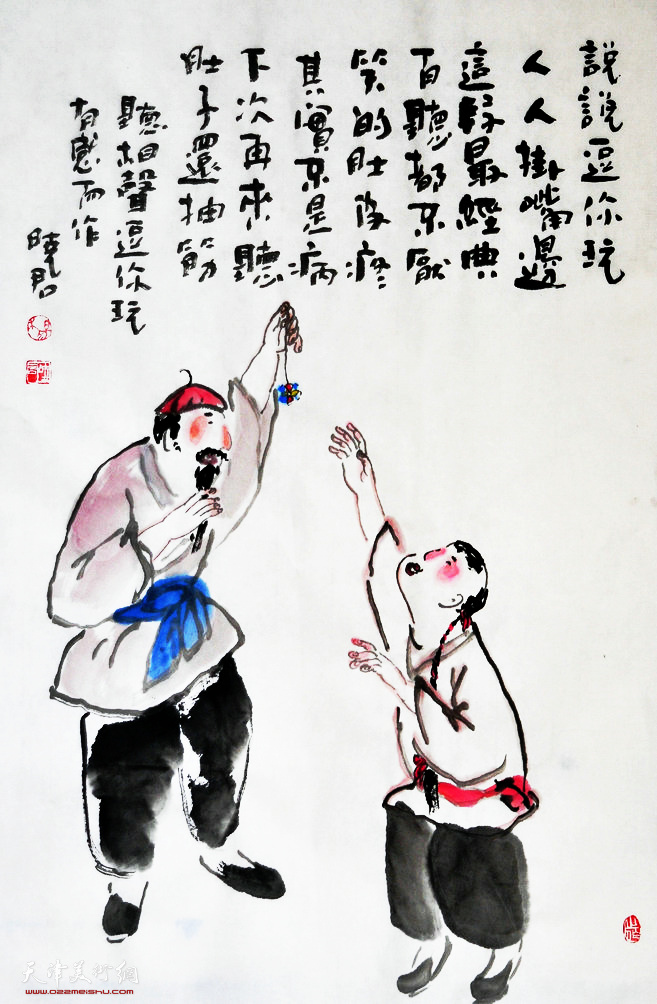 說說逗你玩
人人掛嘴邊
這段最經典
百聽都不厭
笑的肚皮疼
其實不是病
下次再來聽
肚子還抽筋
聽相聲逗你玩
有感而作
曉君
天津美术網
www.022meishu.com